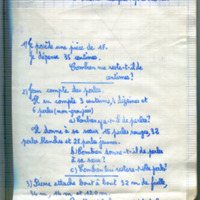 1) Je possède une pièce de 1F.
Je dépense 35 centimes.
Combien me reste-t-il de
centimes?
2) Jean compte des perles.
Il en compte 3 centaines, 4 dizaines et
6 perles (non groupées)
a) Combien y a-t-il de perles?
Il donne à sa sœur 15 perles rouges, 32
perles blanches et 28 perles jaunes.
b) Combien donne-t-il de perles
à sa sœur?
c) Combien lui reste-t-il de perles?
3) Pierre attache bout à bout 32 m de ficelle,
14 m, 17 m et 120 m.